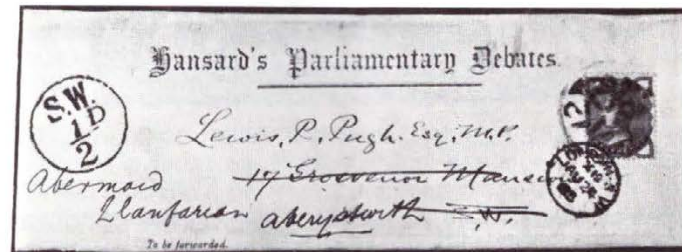 Hansard's Parliamentary Debates.
S.W.
1D
2
Lewis, P. Pugh. Esq, M.P.
17 Grosvenor Mansions
S.W.
Abermaid
Llanfarian Aberystwith
To be forwarded.
LONDON S.W